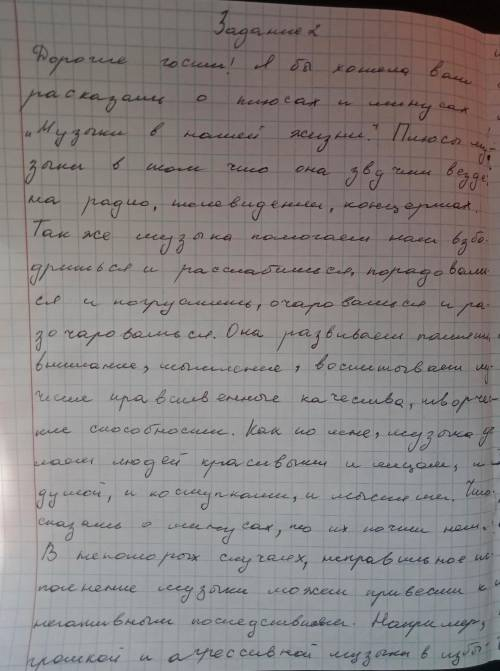 Задание 2
Дорогие гости! Я бы хотела вам
расказать о плюсах и минусах
"Музыки в нашей жизни." Плюсы му-
зыки в том что она звучит везде:
на радио, телевидении, концертах.
Так же музыка помогает нам взбо-
дриться и расслабиться, порадовать
ся и погрустить, очароваться и ра-
зочароваться. Она развивает память,
внимание, мышление, воспитывает лу
чшие нравственные качества, творчес
кие способности. Как по мне, музыка де
лает людей красивыми и лицом, и
душой, и поступками, и мыслями. Что
сказать о минусах, то их почти нет.
В некоторых случаях, неправильное ис
полнение музыки может привести к
негативным последствиям. Например,
громкой и агрессивной музыки в избы